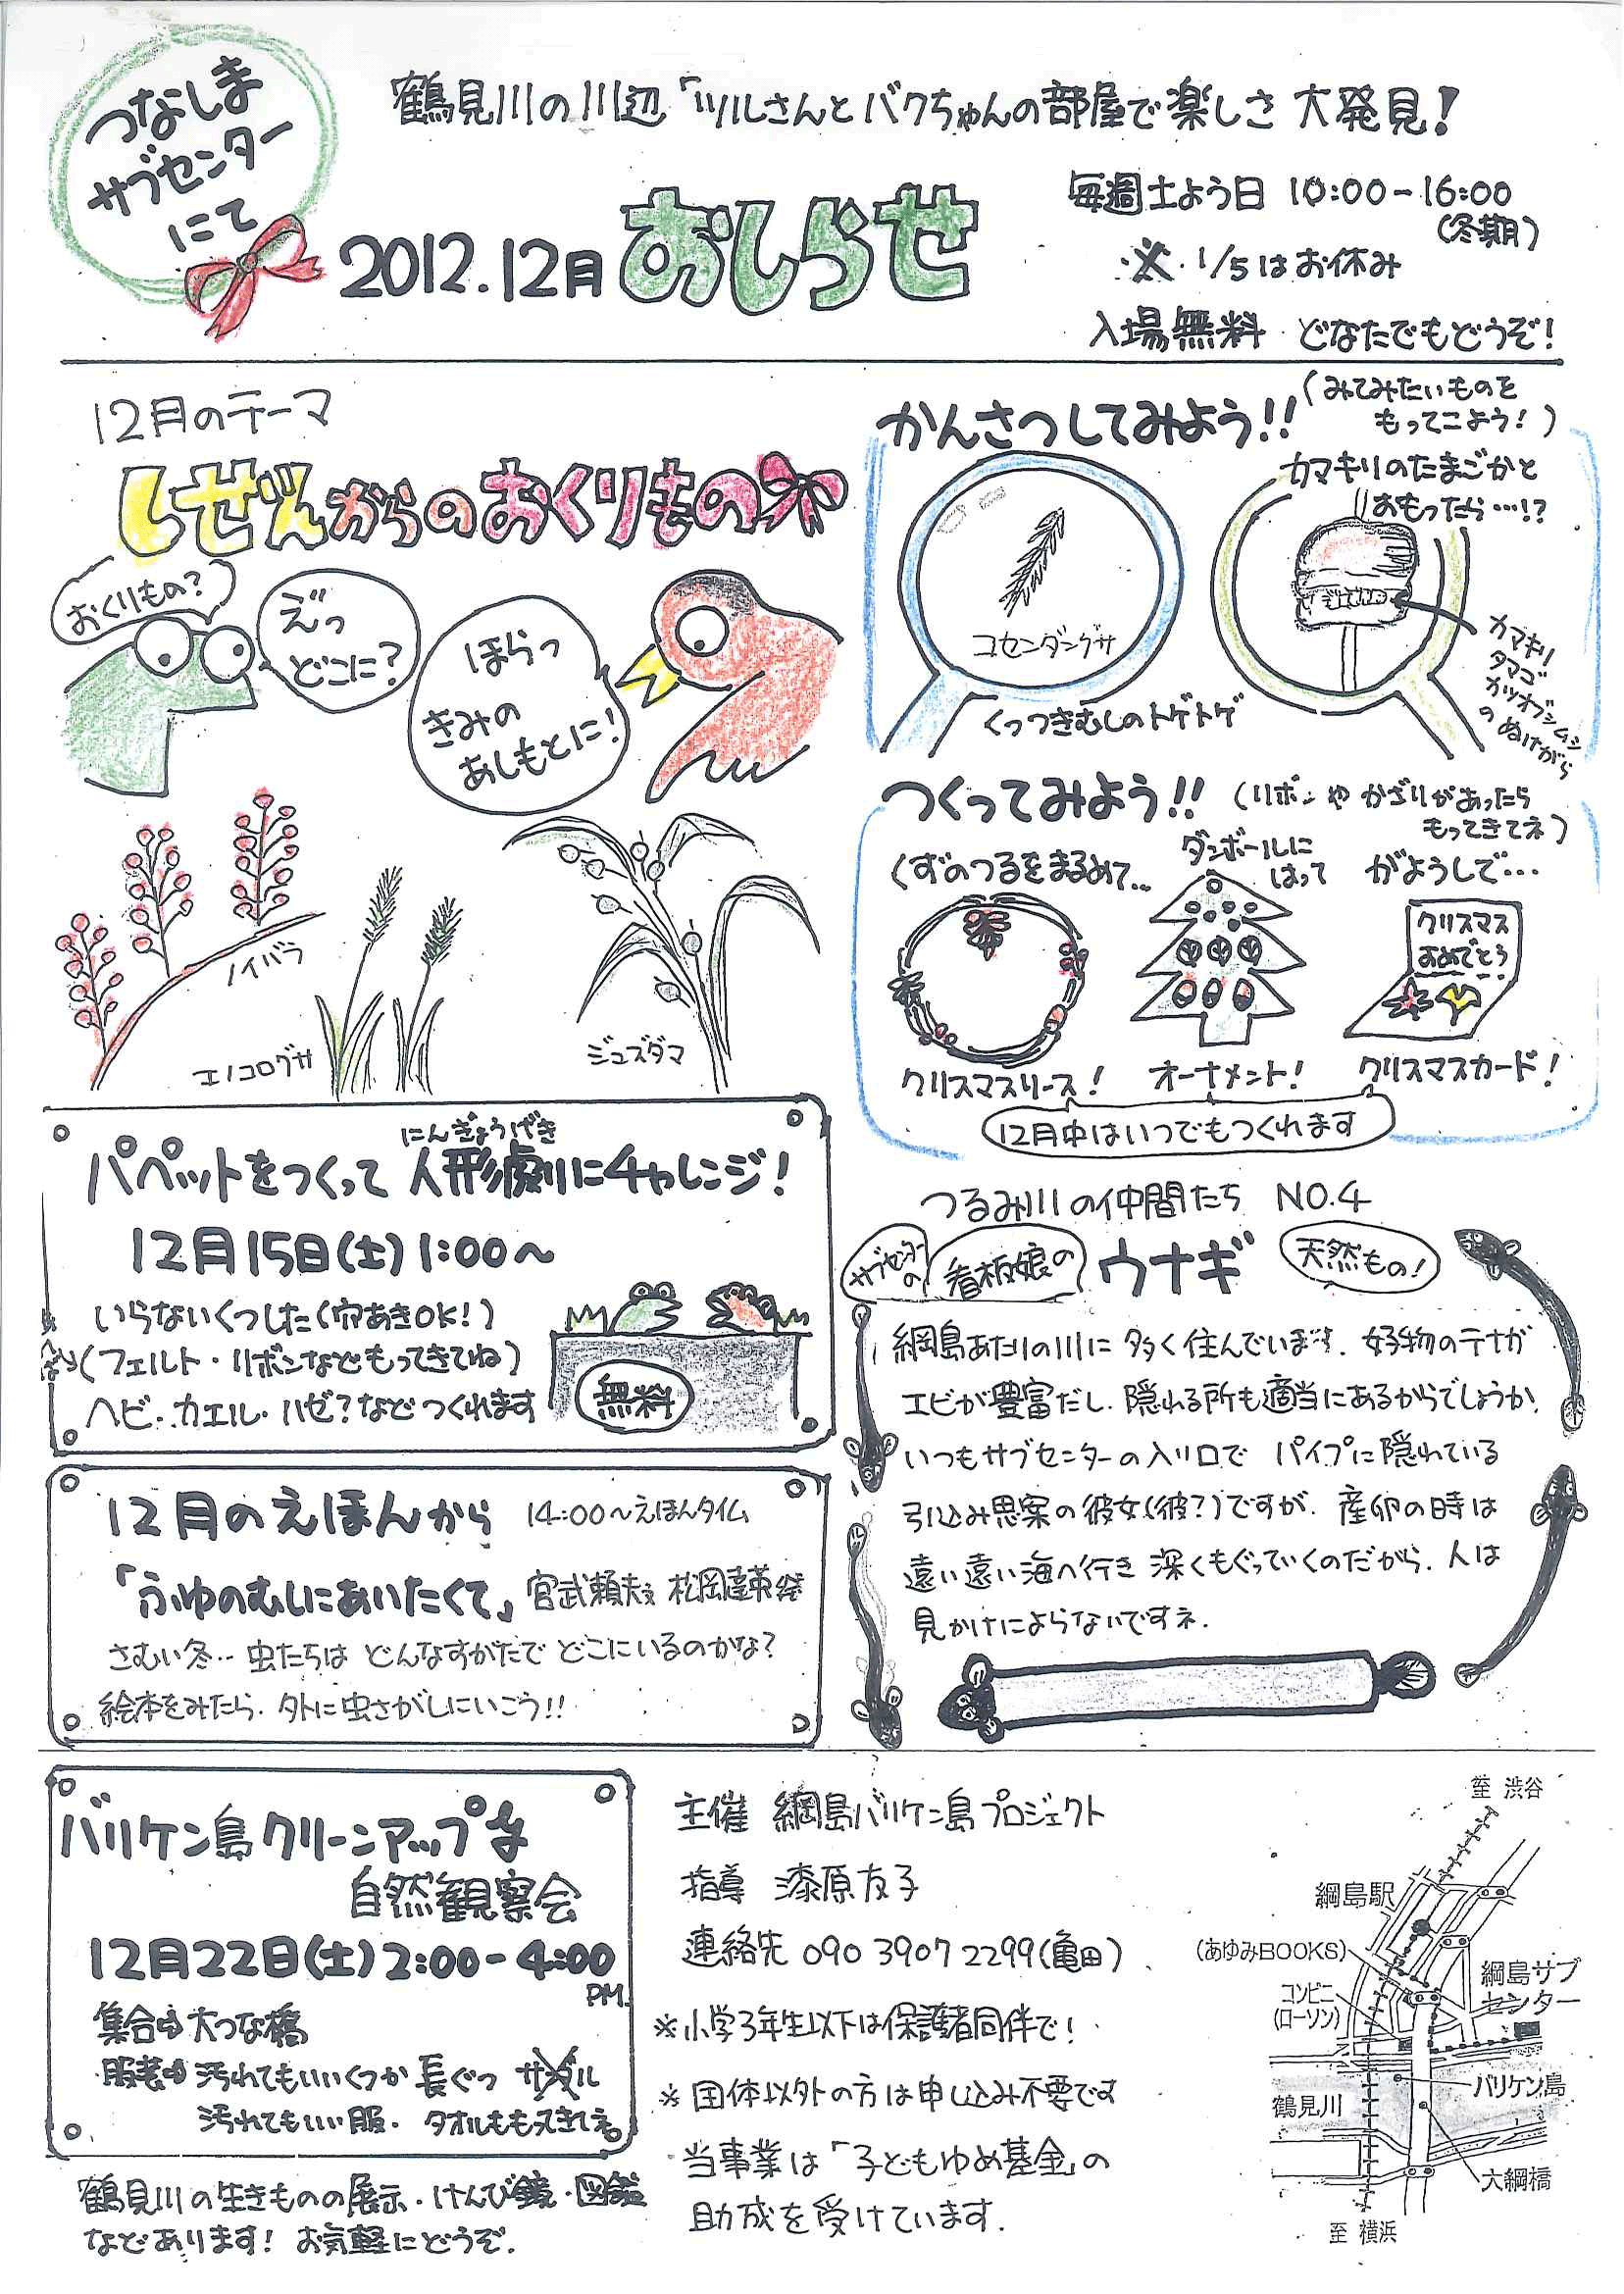 つなしま
サブセンター
にて
鶴見川の川辺「ツルさんとバクちゃんの部屋で楽しさ 大発見!
2012.12月 おしらせ
毎週土よう日 10:00-16:00
(冬期)
※ 1/5はお休み
入場無料 どなたでもどうぞ!
12月のテーマ
しぜんからのおくりもの
おくりもの?
えっ
どこに?
ほらっ
きみの
あしもとに!
ノイバラ
エノコログサ
ジュズダマ
かんさつしてみよう!!
(みてみたいものを
もってこよう!)
コセンダングサ
くっつきむしのトゲトゲ
カマキリのたまごかと
おもったら…!?
カマキリ
タマゴ
カツオブシムシ
のぬけがら
つくってみよう!!
(リボンや かざりがあったら
もってきてネ)
くずのつるをまるめて…
クリスマスリース!
ダンボールに
はって
オーナメント!
がようしで…
クリスマス
おめでとう
クリスマスカード!
12月中はいつでもつくれます
にんぎょうげき
パペットをつくって 人形劇にチャレンジ!
12月15日(土)1:00~
いらないくつした(穴あきOK!)
(フェルト・リボンなどもってきてね)
ヘビ・カエル・ハゼ?などつくれます
無料
12月のえほんから 14:00~えほんタイム
「ふゆのむしにあいたくて」 宮武頼夫文 松岡達英絵
さむい冬‥虫たちは どんなすがたで どこにいるのかな?
絵本をみたら、外に虫さがしにいこう!!
つるみ川の仲間たち NO.4
サブセンター
の
看板娘の
ウナギ
天然もの!
綱島あたりの川に 多く住んでいます。好物のテナガ
エビが豊富だし、隠れる所も適当にあるからでしょうか。
いつもサブセンターの入り口で パイプに隠れている
引込み思案の彼女(彼?)ですが、産卵の時は
遠い遠い海へ行き 深くもぐっていくのだから、人は
見かけによらないですネ。
バリケン島クリーンアップ&
自然観察会
12月22日(土)2:00-4:00
PM.
集合⇨大つな橋
服装⇨汚れてもいいくつか 長ぐつ サンダル
汚れてもいい服、タオルももってきてネ。
鶴見川の生きものの展示・けんび鏡・図鑑
などあります! お気軽にどうぞ。
主催 綱島バリケン島プロジェクト
指導 漆原友子
連絡先 090 3907 2299(亀田)
※小学3年生以下は保護者同伴で!
※団体以外の方は申し込み不要です
当事業は「子どもゆめ基金」の
助成を受けています。
至 渋谷
綱島駅
(あゆみBOOKS)
コンビニ
(ローソン)
綱島サブ
センター
バリケン島
鶴見川
大綱橋
至 横浜